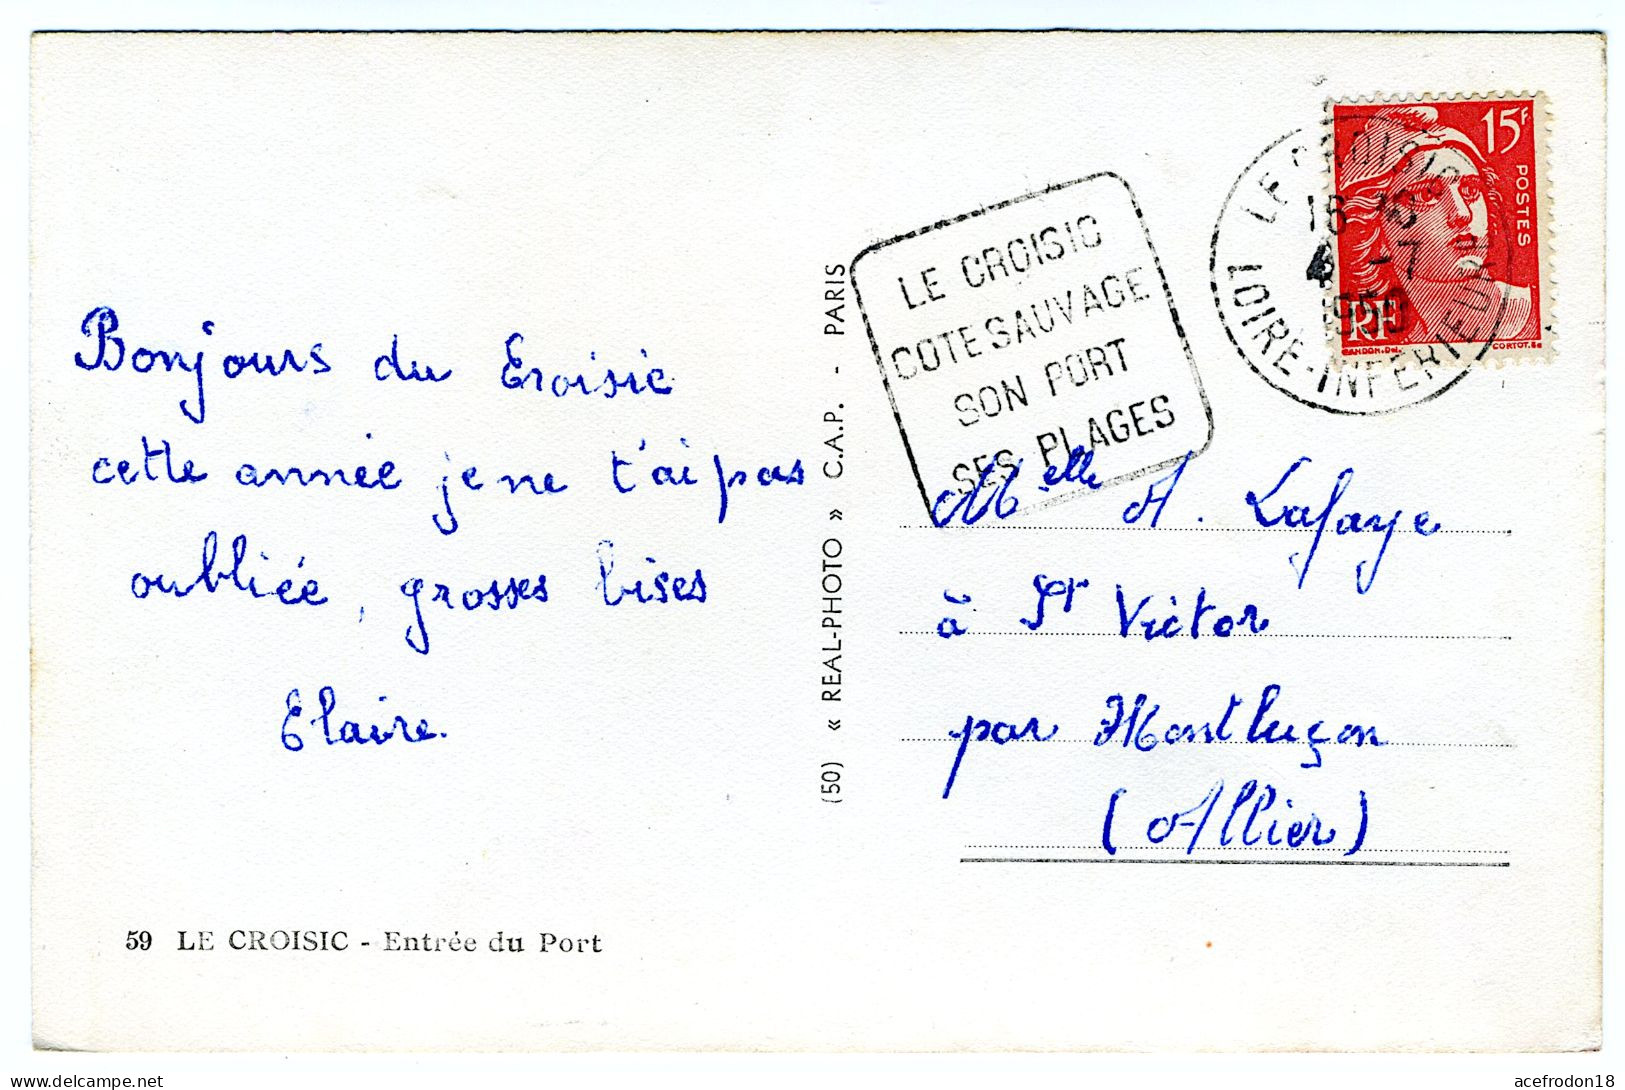 Bonjours du Croisic
cette année je ne t'ai pas
oubliée, grosses bises
Claire.
59 LE CROISIC - Entrée du Port
(50) « REAL-PHOTO » C.A.P. - PARIS
LE CROISIC
COTE SAUVAGE
SON PORT
SES PLAGES
LE CROISIC
16
-7
1950
LOIRE-INFERIEURE
15F
POSTES
RF
GANDON.Del.
CORTOT.Sc
Melle A. Lafaye
à St Victor
par Montluçon
(Allier)
acefrodon18
delcampe.net